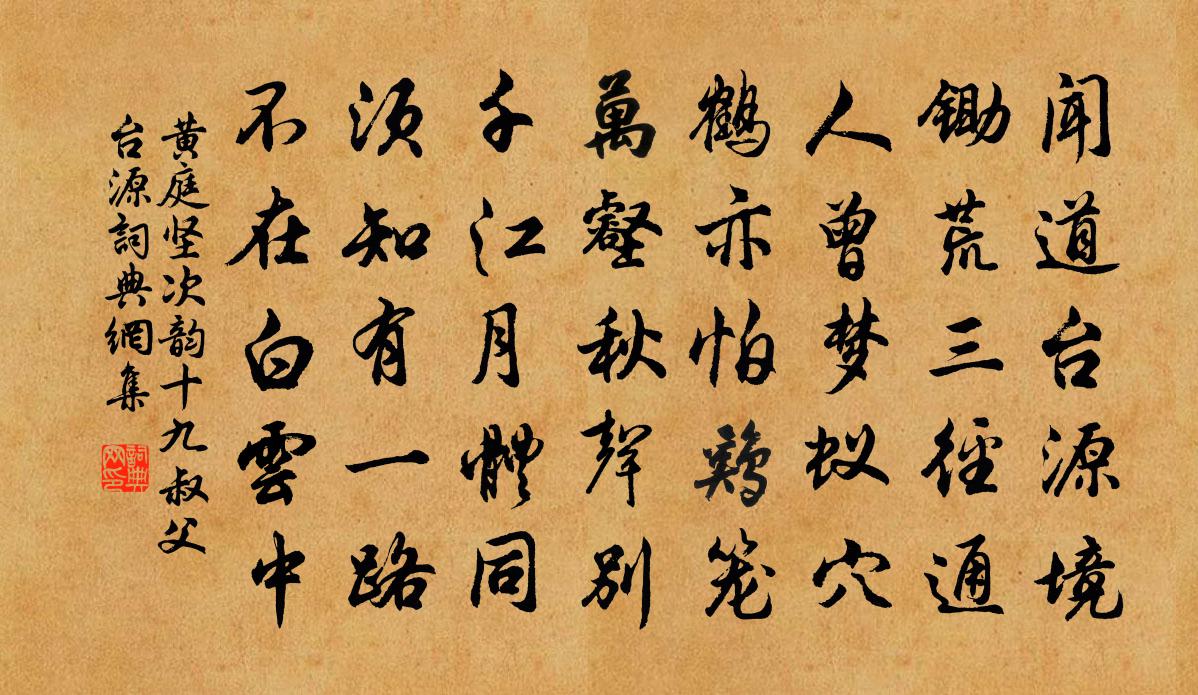 闻道台源境
锄荒三径通
人曾梦蚁穴
鹤亦怕鸡笼
萬壑秋聲别
千江月體同
须知有一路
不在白雲中
黄庭坚次韵十九叔父
台源詞典網集
詞典網印